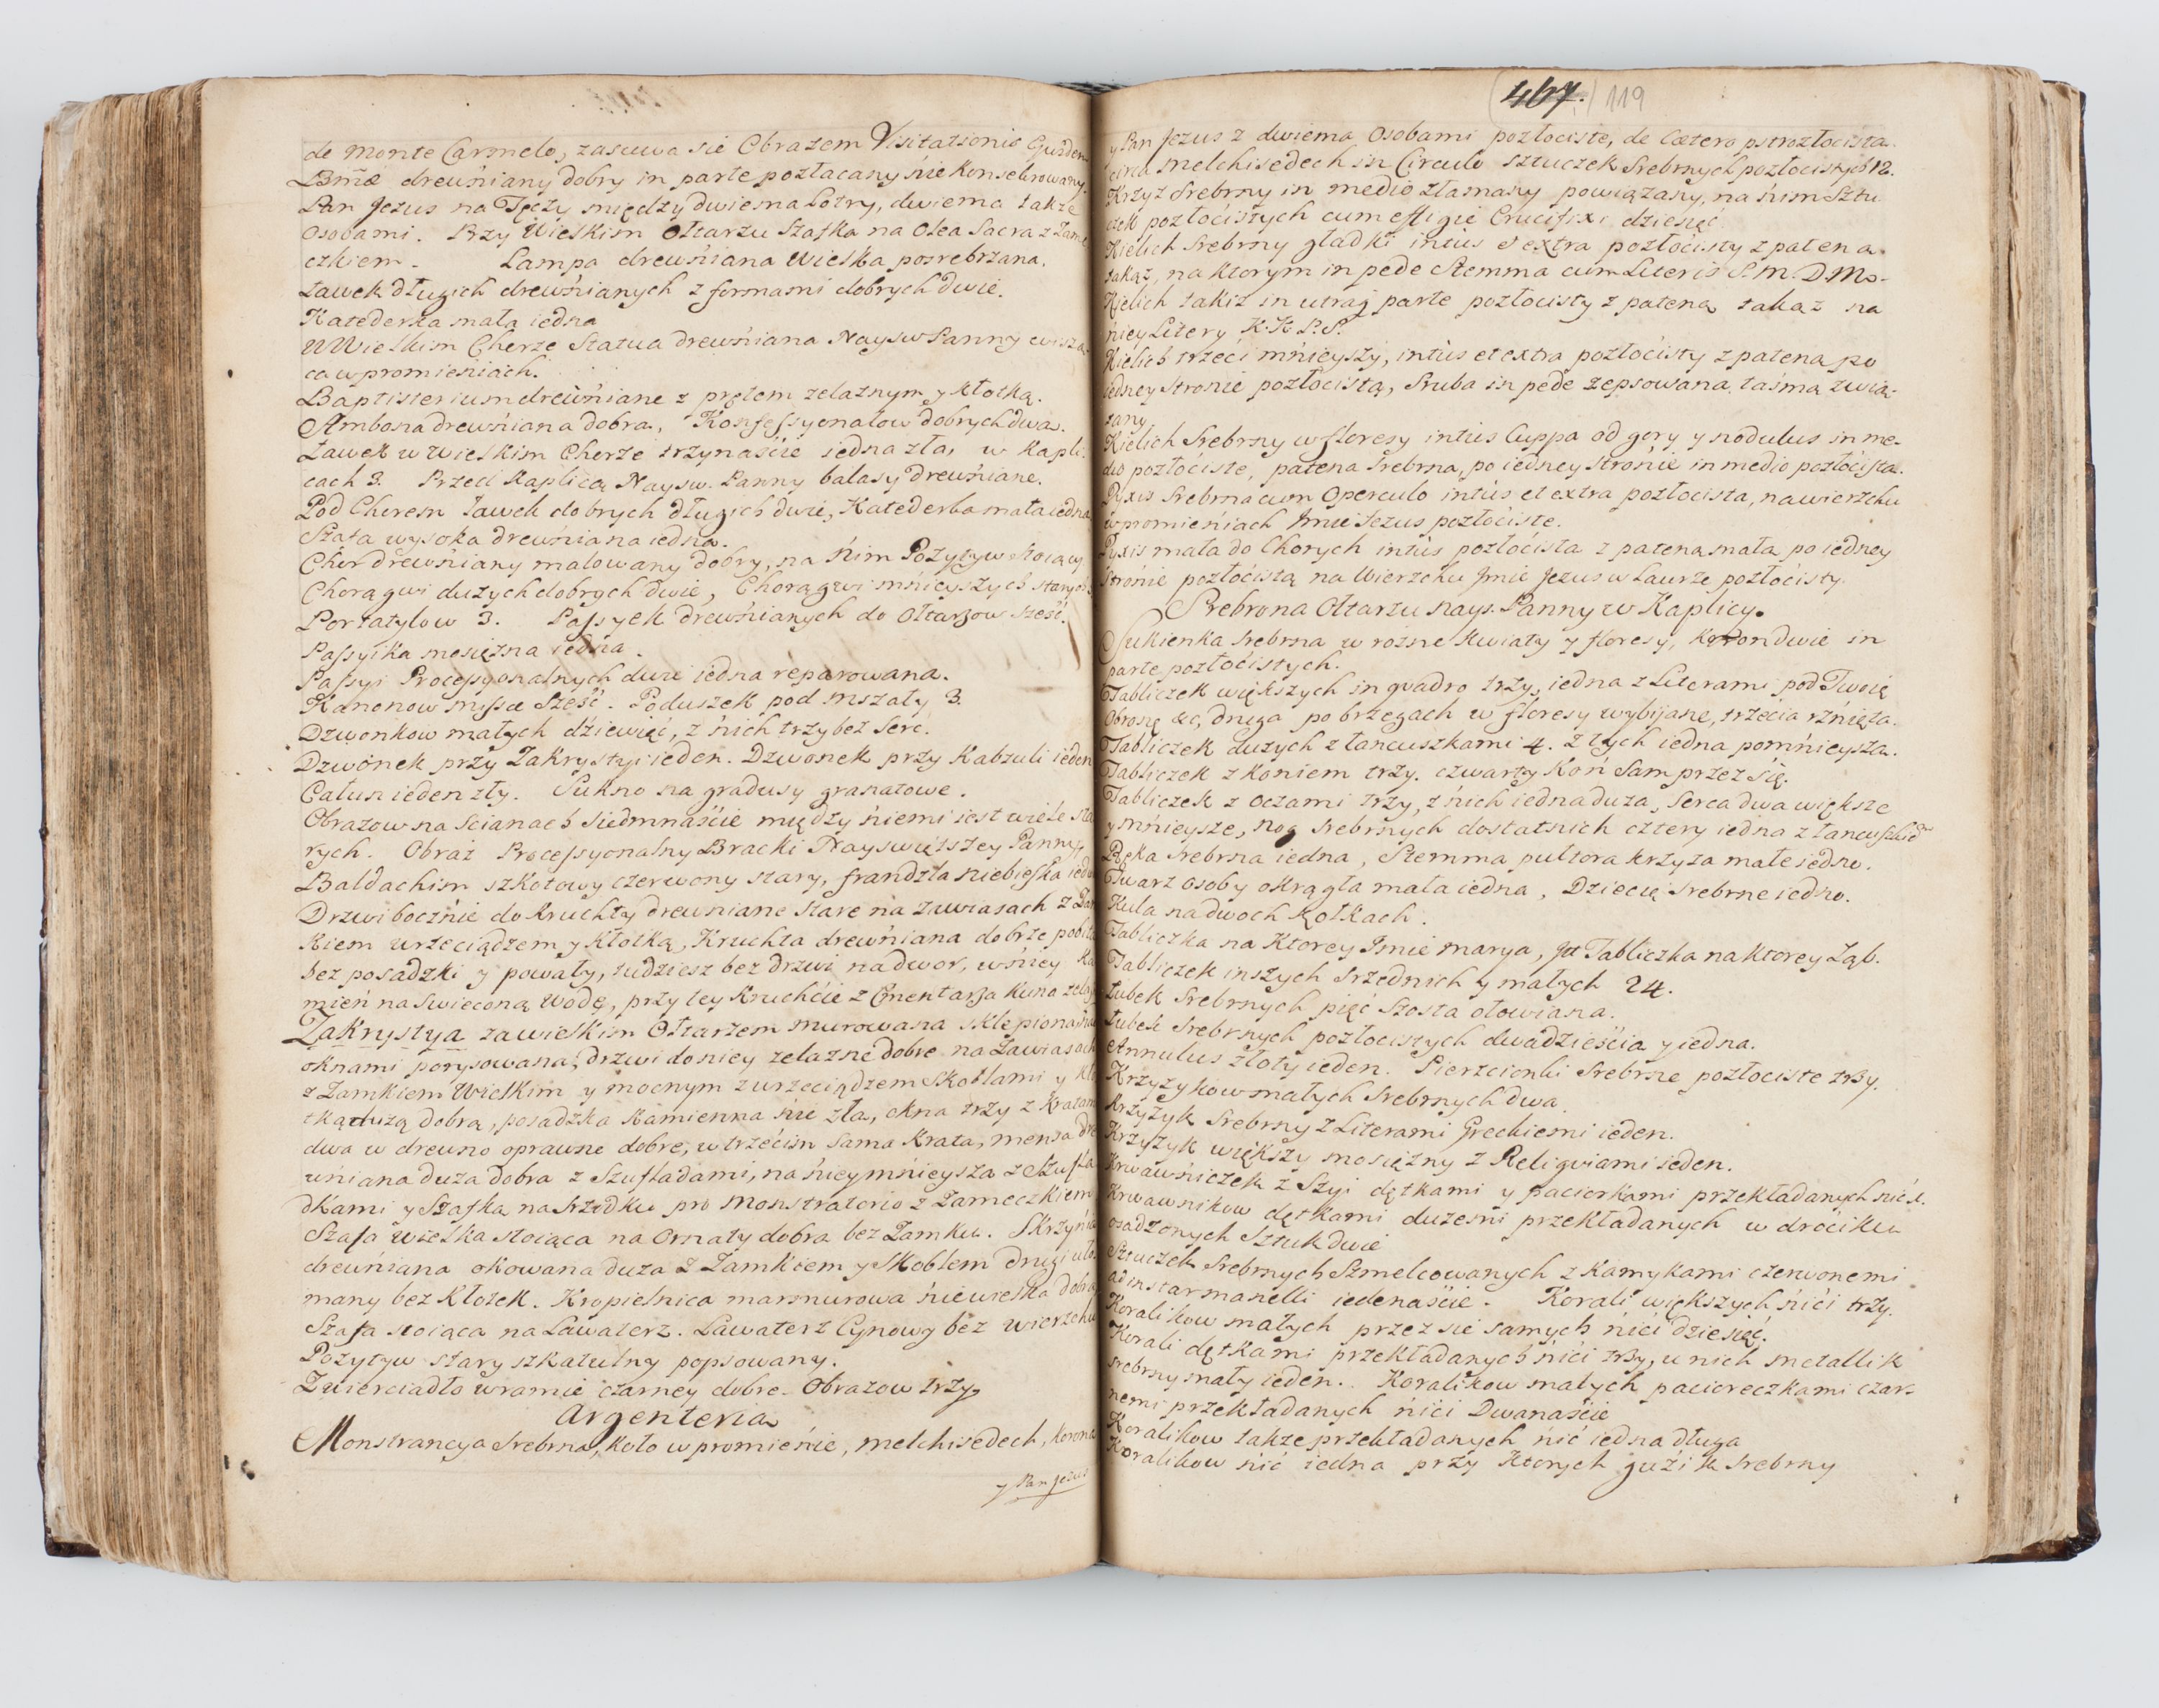 de Monte Carmelo, zasuwa się Obrazem Visitationis
Bmæ drewniany dobry in parte pozłacany nie konsekrowany.
Pan Jezus na Tęczy między dwiema Łotry, dwiema także
Osobami. Przy Wielkim Ołtarzu Szafka na Olea Sacra z Zame
czkiem. Lampa drewniana Wielka posrebrzana.
Ławek długich drewnianych z formami dobrych dwie.
Katederka mała iedna
W Wielkim Chorze Statua drewniana Nayśw Panny wiszą-
ca w promieniach.
Baptisterium drewniane z prętem żelaznym y kłotką.
Ambona drewniana dobra, Konfessyonałow dobrych dwa.
Ławek w Wielkim Chorze trzynaście iedna zła, w Kapli-
cach 3. Przed Kaplicą Nayśw. Panny balasy drewniane.
Pod Chorem ławek dobrych długich dwie, Katederka mała iedna
Szafa wysoka drewniana iedna.
Chor drewniany malowany dobry, na nim Pozytyw stoiący
Chorągwi dużych dobrych dwie, Chorągwi mnieyszych starych
Portatylow 3. Passyek drewnianych do Ołtarzow sześć.
Passyika mosiężna iedna.
Passyi Processyonalnych dwie iedna reparowana.
Kanonow missæ sześć. Poduszek pod mszały 3.
Dzwonkow małych dziewięć, z nich trzy bez serc.
Dzwonek przy Zakrystyi ieden. Dzwonek przy Kabzuli ieden
Całun ieden zły. Sukno na gradusy granatowe.
Obrazow na Scianach Siedmnaście między niemi iest wiele sta
rych. Obraz Processyonalny Bracki Nayświętszey Panny,
Baldachim szkotowy czerwony stary, frandzla niebieska iedw
Drzwi bocznie do kruchty drewniane stare na zawiasach z Zam
kiem wrzeciądzem y kłotką, Kruchta drewniana dobrze pobita
bez posadzki y powały, tudziesz bez drzwi na dwor, w niey ka
mień na Swieconą Wodę, przy tey kruchcie z Cmentarza kuna żela
Zakrystya za wielkim Ołtarzem murowana sklepiona
oknami porysowana, drzwi do niey żelazne dobre na Zawiasach
z Zamkiem Wielkim y mocnym z wrzeciądzem Skoblami y kło
tką dużą dobrą, posadzka kamienna nie zła, okna trzy z kratami
dwa w drewno oprawne dobre, w trzecim sama krata, mensa dre
wniana duża dobra z Szufladami, na niey mnieysza ze szufla
dkami y Szafka na Srzodku pro Monstratorio z Zameczkiem
Szafa wielka stoiąca na Ornaty dobra bez Zamku. Skrzynia
drewniana okowana duża z Zamkiem y Skoblem drugi uło
many bez kłotek. Kropielnica marmurowa niewielka dobra
Szafa stoiąca na Lawaterz. Lawaterz Cynowy bez wierzchu
Pozytyw stary szkatulny popsowany.
Zwierciadło w ramie czarney dobre. Obrazow trzy
Argenteria
Monstrancya Srebrna, koło w promienie, Melchisedech, korona
y Pan Jezus
467. 119
y Pan Jezus z dwiema Osobami pozłociste, de Cætero pstrozłocista.
circa Melchisedech in Circulo sztuczek Srebrnych pozłocistych 12.
Krzyż Srebrny in medio złamany powiązany, na nim Sztu
czek pozłocistych cum effigie Crucifixi dziesięć
Kielich Srebrny gładki intus et extra pozłocisty z pateną
takąż, na ktorym in pede Stemma cum Literis S. M. D. Mo-
Kielich takiż in utraq parte pozłocisty z pateną takąż na
niey Litery K. K. P. S.
Kielich trzeci mnieyszy, intus et extra pozłocisty z pateną po
iedney Stronie pozłocistą, Sruba in pede zepsowana taśmą zwią-
zany
Kielich Srebrny w floresy intus Cuppa od gory y nodulus in me-
dio pozłociste, patena srebrna, po iedney stronie in medio pozłocista.
Pyxis Srebrna cum Operculo intus et extra pozłocista, na wierzchu
w promieniach Jmie Jezus pozłociste.
Pyxis mała do Chorych intus pozłocista z pateną mała po iedney
Stronie pozłocistą na Wierzchu Jmie Jezus w Laurze pozłocisty.
Srebro na Ołtarzu nays. Panny w Kaplicy.
Sukienka srebrna w rożne kwiaty y floresy, koron dwie in
parte pozłocistych.
Tabliczek większych in quadro trzy, iedna z Literami pod Twoię
Obronę &c, druga po brzegach w floresy wybijane, trzecia rznięta.
Tabliczek dużych z łancuszkami 4. z tych iedna pomnieysza.
Tabliczek z koniem trzy. czwarty Koń Sam przez się.
Tabliczek z Oczami trzy, z nich iedna duża, Serca dwa większe
y mnieysze, nog srebrnych dostatnich cztery iedna z łancuszkiem
Ręka srebrna iedna, Stemma pułtora krzyża małe iedno.
Twarz osoby okrągła mała iedna, Dziecię Srebrne iedno.
Kula na dwoch kołkach.
Tabliczka na Ktorey Jmie Marya, Jtt Tabliczka na Ktorey Ząb.
Tabliczek inszych srzednich y małych 24.
Łubek Srebrnych pięć szosta ołowiana.
Łubek Srebrnych pozłocistych dwadzieścia y iedna.
Annulus złoty ieden. Pierzcionki Srebrne pozłociste trzy.
Krzyżykow małych Srebrnych dwa.
Krzyżyk Srebrny z Literami Greckiemi ieden.
Krzyżyk większy mosiężny z Religwiami ieden.
Krwawniczek z Szyi dętkami y paciorkami przekładanych
Krwawnikow dętkami dużemi przekładanych w drociku
osadzonych Sztuk dwie
Sztuczek Srebrnych Szmelcowanych z Kamykami czerwonemi
ad instar manelli iedenaście. Korali większych nici trzy.
Koralikow małych przez sie samych nici dziesięć.
Korali dętkami przekładanych nici trzy, u nich metallik
srebrny mały ieden. Koralikow małych paciereczkami czar-
nemi przekładanych nici Dwanaście
Koralikow także przekładanych nić iedna długa
Koralikow nić iedna przy ktorych guzik srebrny